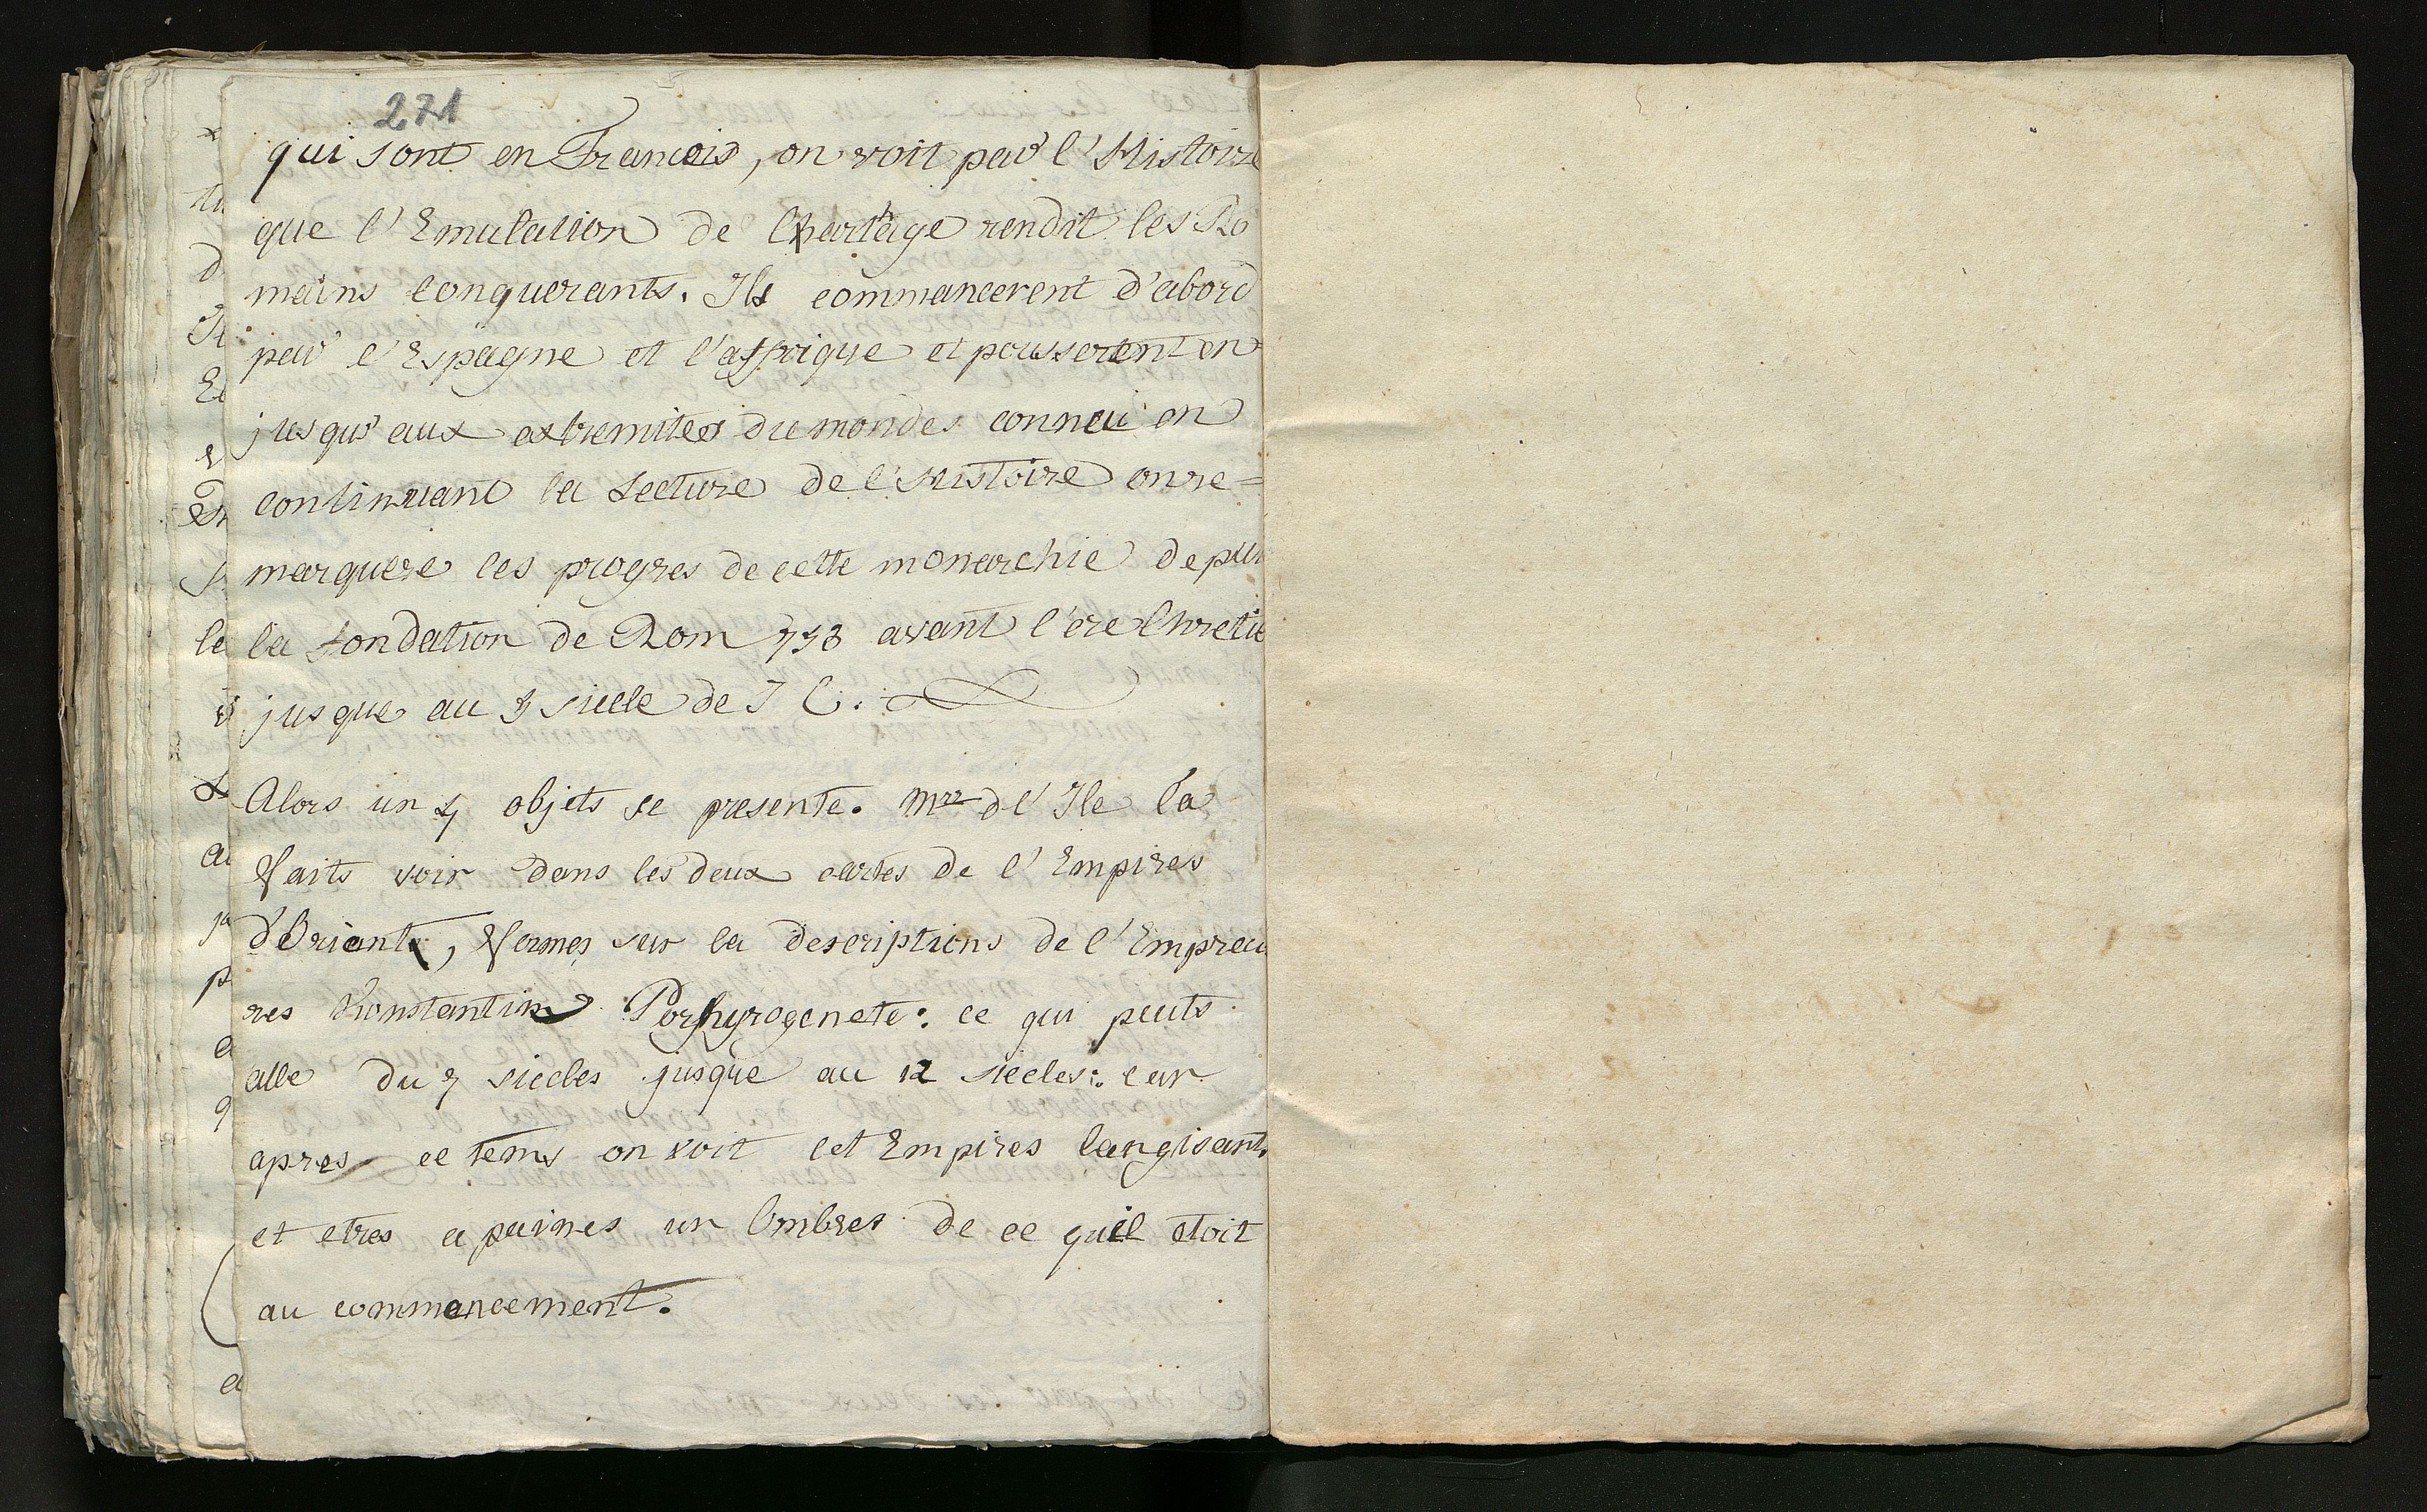 271
qui sont en Francois, on voit par l'Histoire
que l'Emulation de Chartage rendit les Ro
mains Conquerants. Ils commancerent d'abord
par l'Espagne et l'affrique et pousserent en
jusqu'aux extremitees du mondes connu en
continuant la Lecture de l'Histoire on re=
marquere les progres de cette monarchie depui
la fondation de Rom 753 avant l'ére Chretie
jusque au siecle de J C.
Alors un 4 objets se presente. Mrr de l'Ile la
faits voir dans les deux cartes de l'Empires
d'Oriant, formes sur la descriptions de l'Empreu
res Konstantin Porhyrogenete: ce qui peuts
alle du siecles jusque au 12 siecles: car
apres ce tems on voit cet Empires langisant,
et etres a peines un Ombres de ce quil etoit
au commancement.